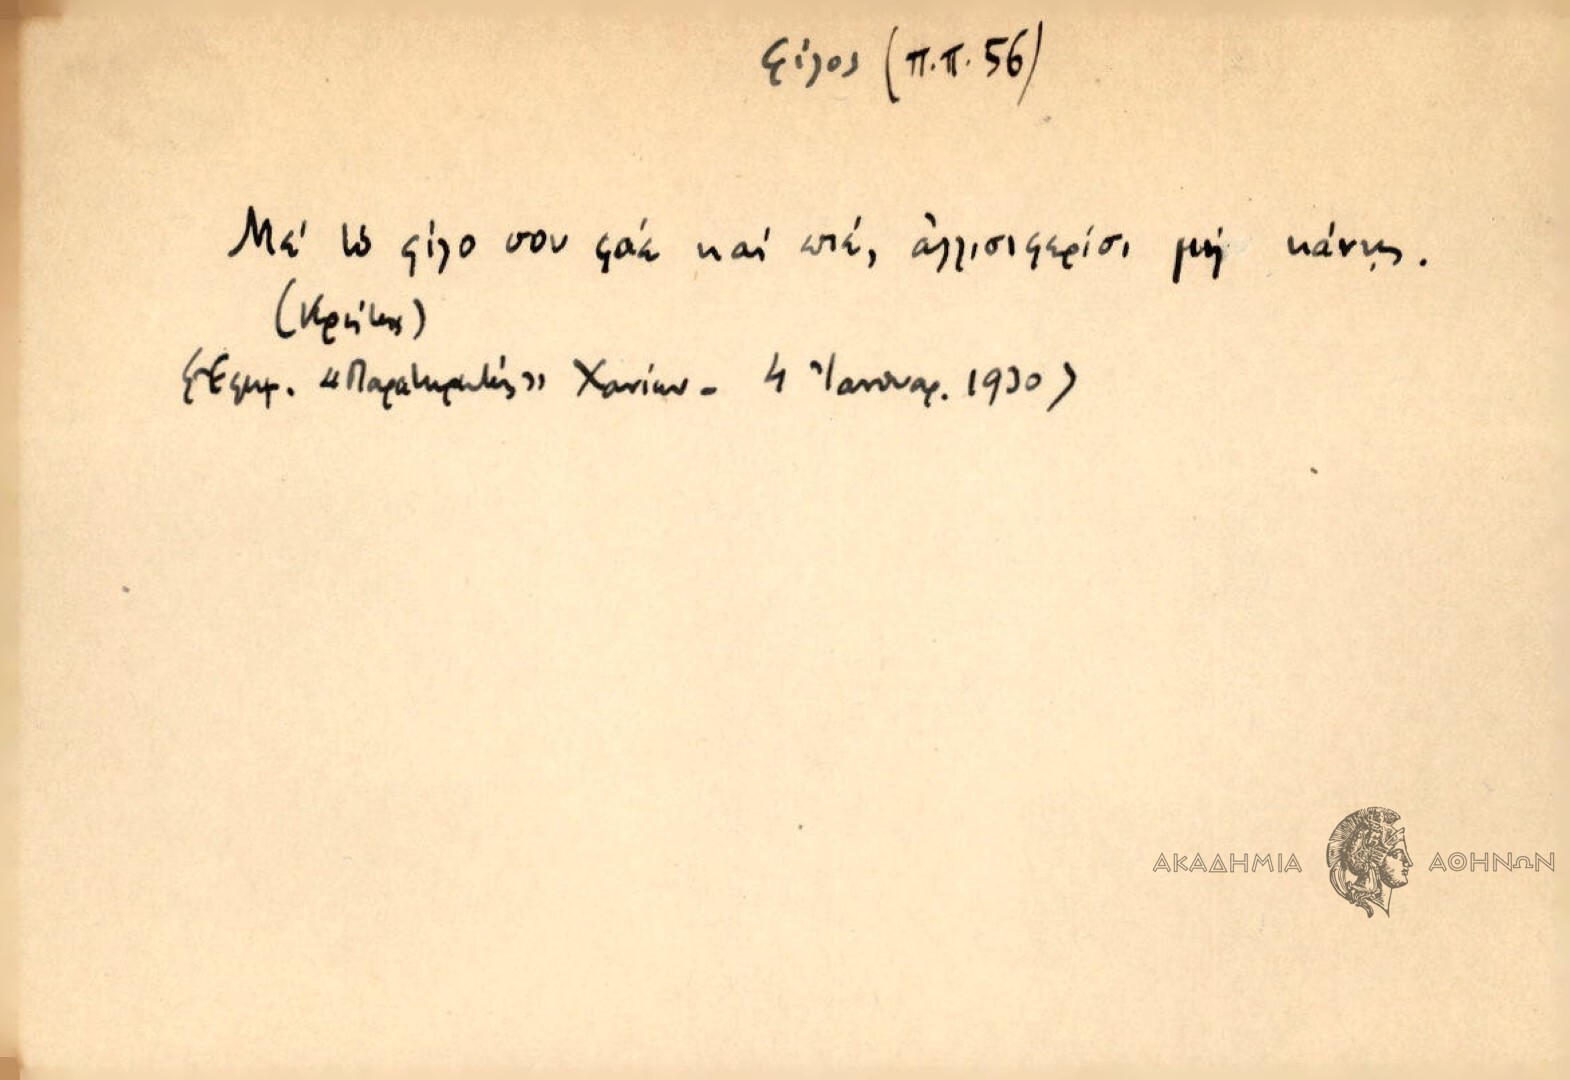 φίλος (π.π. 56)
Μέ τό φίλο σου φάε καί πιέ, ἀλλισιφερίσι μή κάνῃς.
(Κρήτης)
(Ἐφημ. «Παρατηρητής» Χανίων - 4 Ἰανουαρ. 1930)
ΑΚΑΔΗΜΙΑ ΑΘΗΝΩΝ